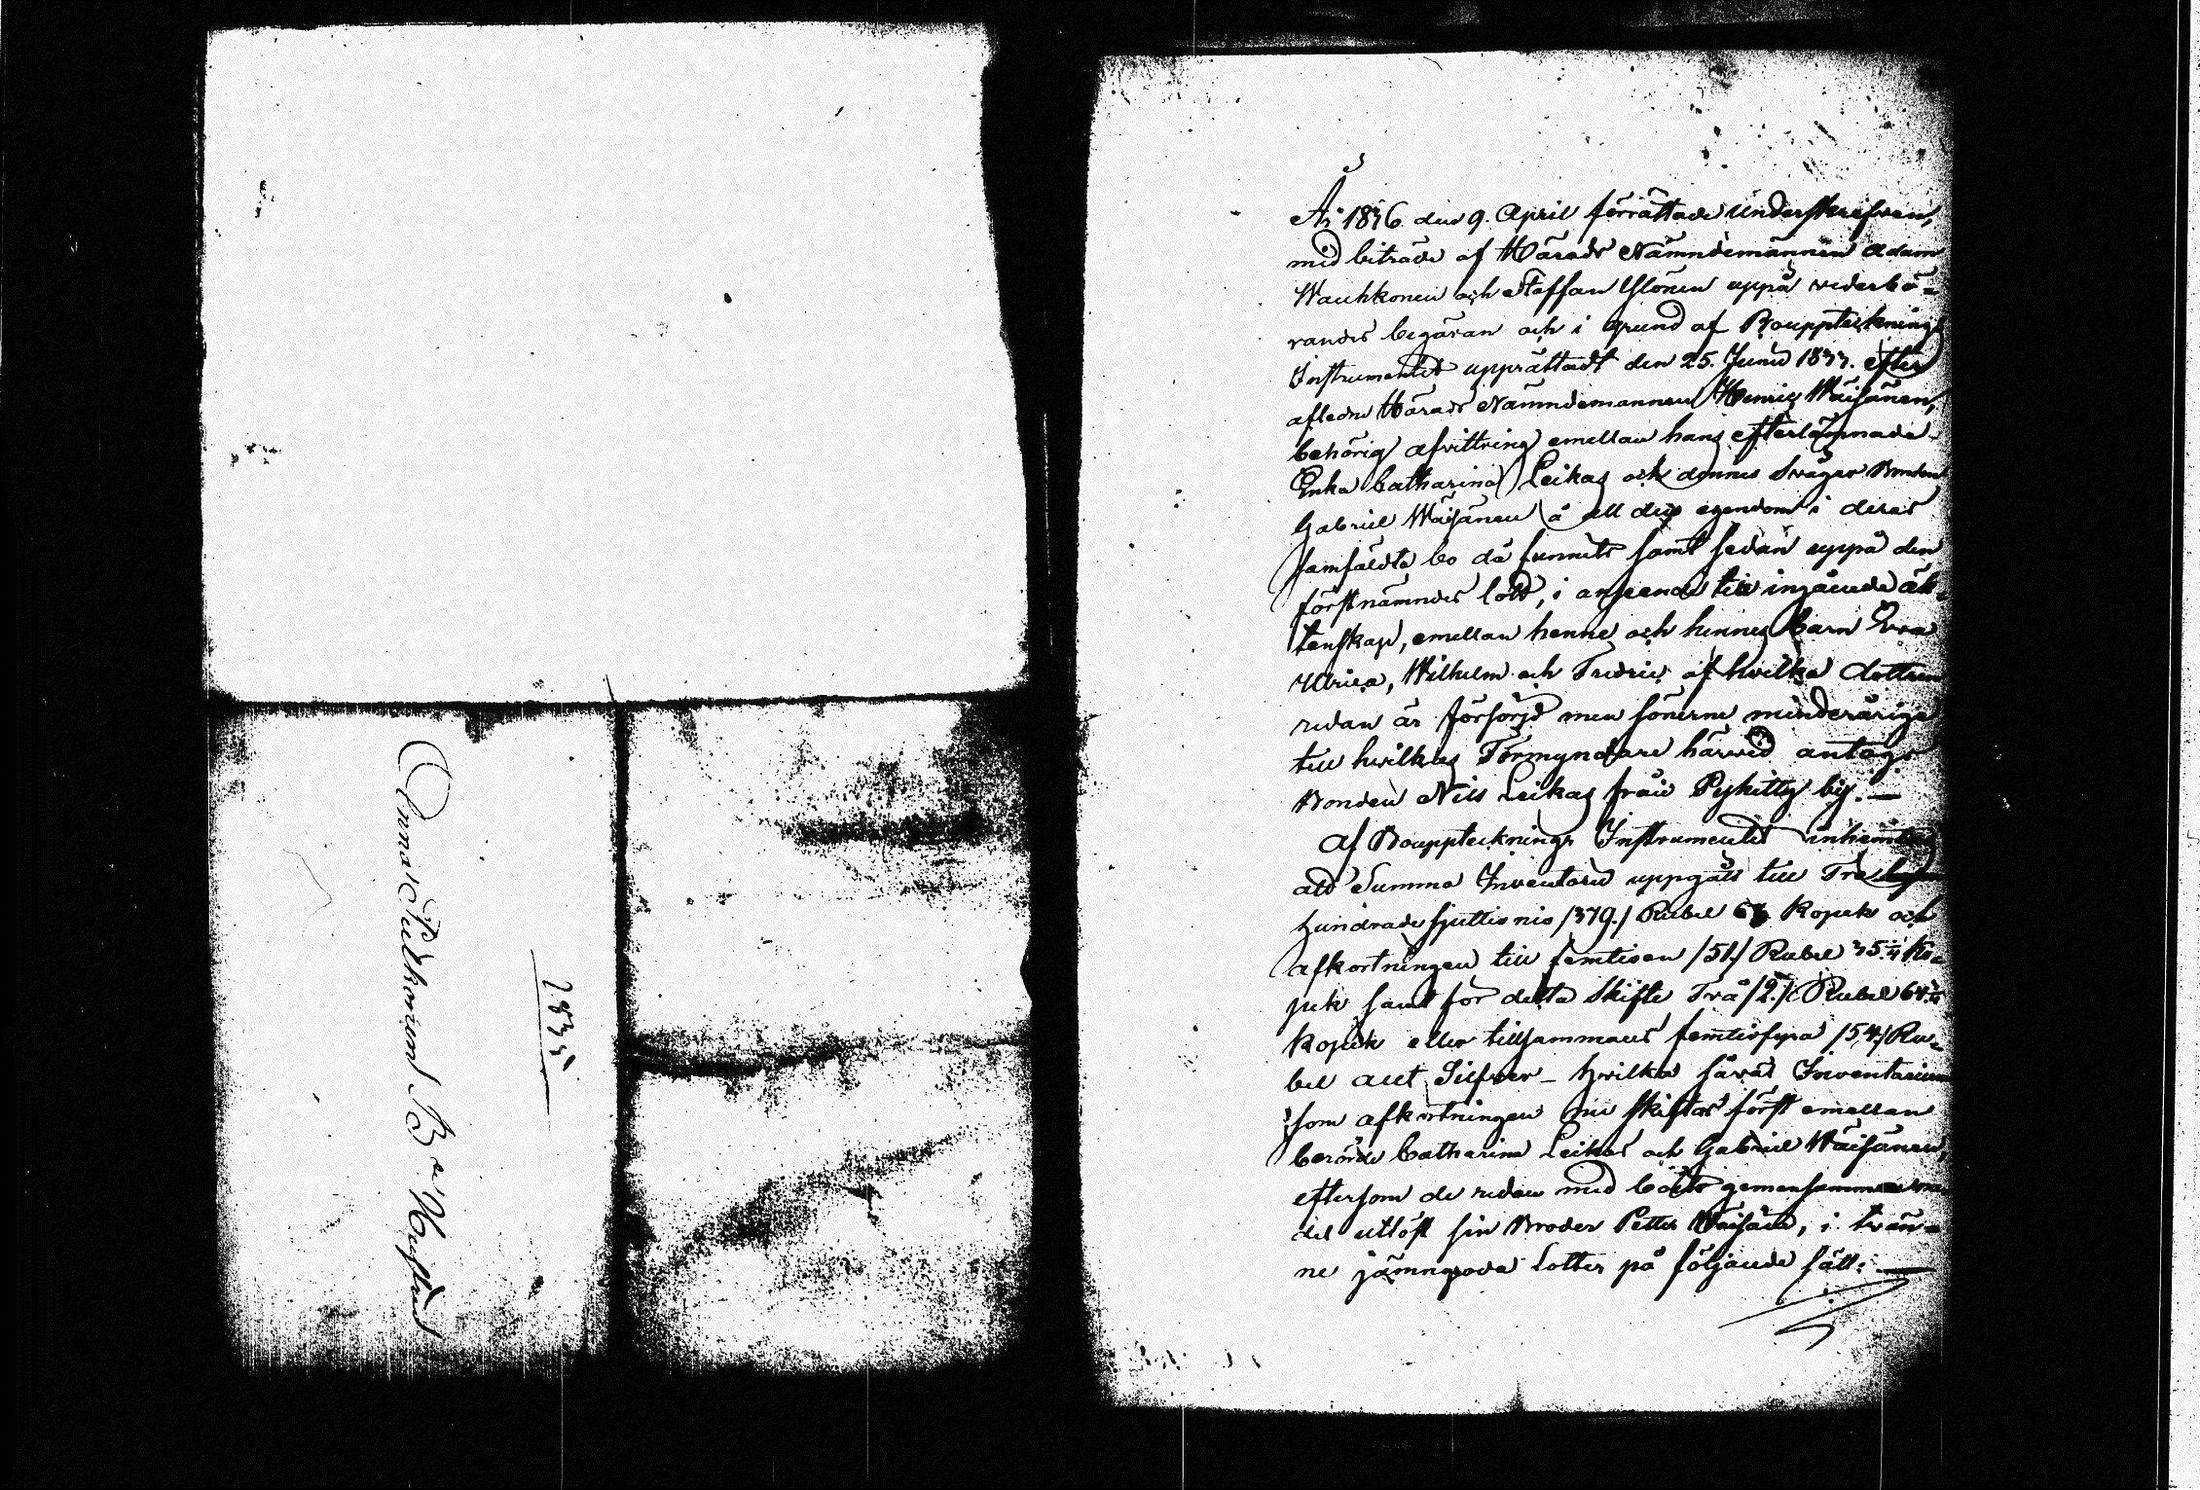 Anna Pulkonens B. u. Husbnd
1835
År 1836 den 9. April förrättade Underskrefven,
med biträde af Härads Nämndemännen Adam
Wauhkonen och Staffan Ylönen uppå wederbö=
randes begäran och i grund af Bouppteknings
Instrumentet upprättadt den 25. Junii 1833. efter
afledne Härads Nämndemannen Henric Wäisänen,
behörig afvittring emellan hans efterlämnade
Enka Catharina Leikas och dennes Svåger Bonden
Gabriel Wäisänen å all den egendom i deras
samfäldta bo då funnits samt sedan uppå den
förstnämndes lott, i anseende till ingående äk=
tenskap, emellan henne och hennes barn Eva
Ulrica, Wilhelm och Fredric af hvilka dottren
redan är försörjd men sönerne minderårige
till hvilkas Förmyndare härvid antogs
Bonden Nils Leikas från Pyhitty by. —
Af Boupptecknings Instrumentet inhemtas
att Summa Inventarii uppgått till Tre
hundrade sjuttio nio /379./ Rubel Kopek och
afkortningen till femtioen /51./ Rubel 35. Ko=
pek samt för detta Skifte Två /2./ Rubel 64.
Kopek eller tillsammans femtiofyra /54./ Ru=
bel allt Silfver – hvilka såväl Inventarium
som afkortningen nu skiftas först emellan
berörde Catharina Leikas och Gabriel Wäisänen,
eftersom de redan med boets gemensamma me=
del utlöst sin Broder Petter Wäisäin, i tvän=
ne jämngoda Lotter på följande sätt: —